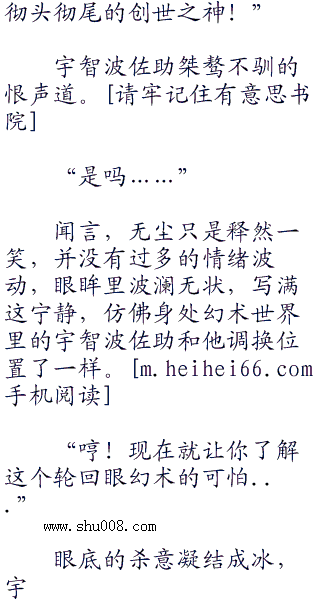 彻头彻尾的创世之神！”
宇智波佐助桀骜不驯的
恨声道。[请牢记住有意思书
院]
“是吗……”
闻言，无尘只是释然一
笑，并没有过多的情绪波
动，眼眸里波澜无状，写满
这宁静，仿佛身处幻术世界
里的宇智波佐助和他调换位
置了一样。[m.heihei66.com
手机阅读]
“哼！现在就让你了解
这个轮回眼幻术的可怕..
.”
www.shu008.com
眼底的杀意凝结成冰，
宇